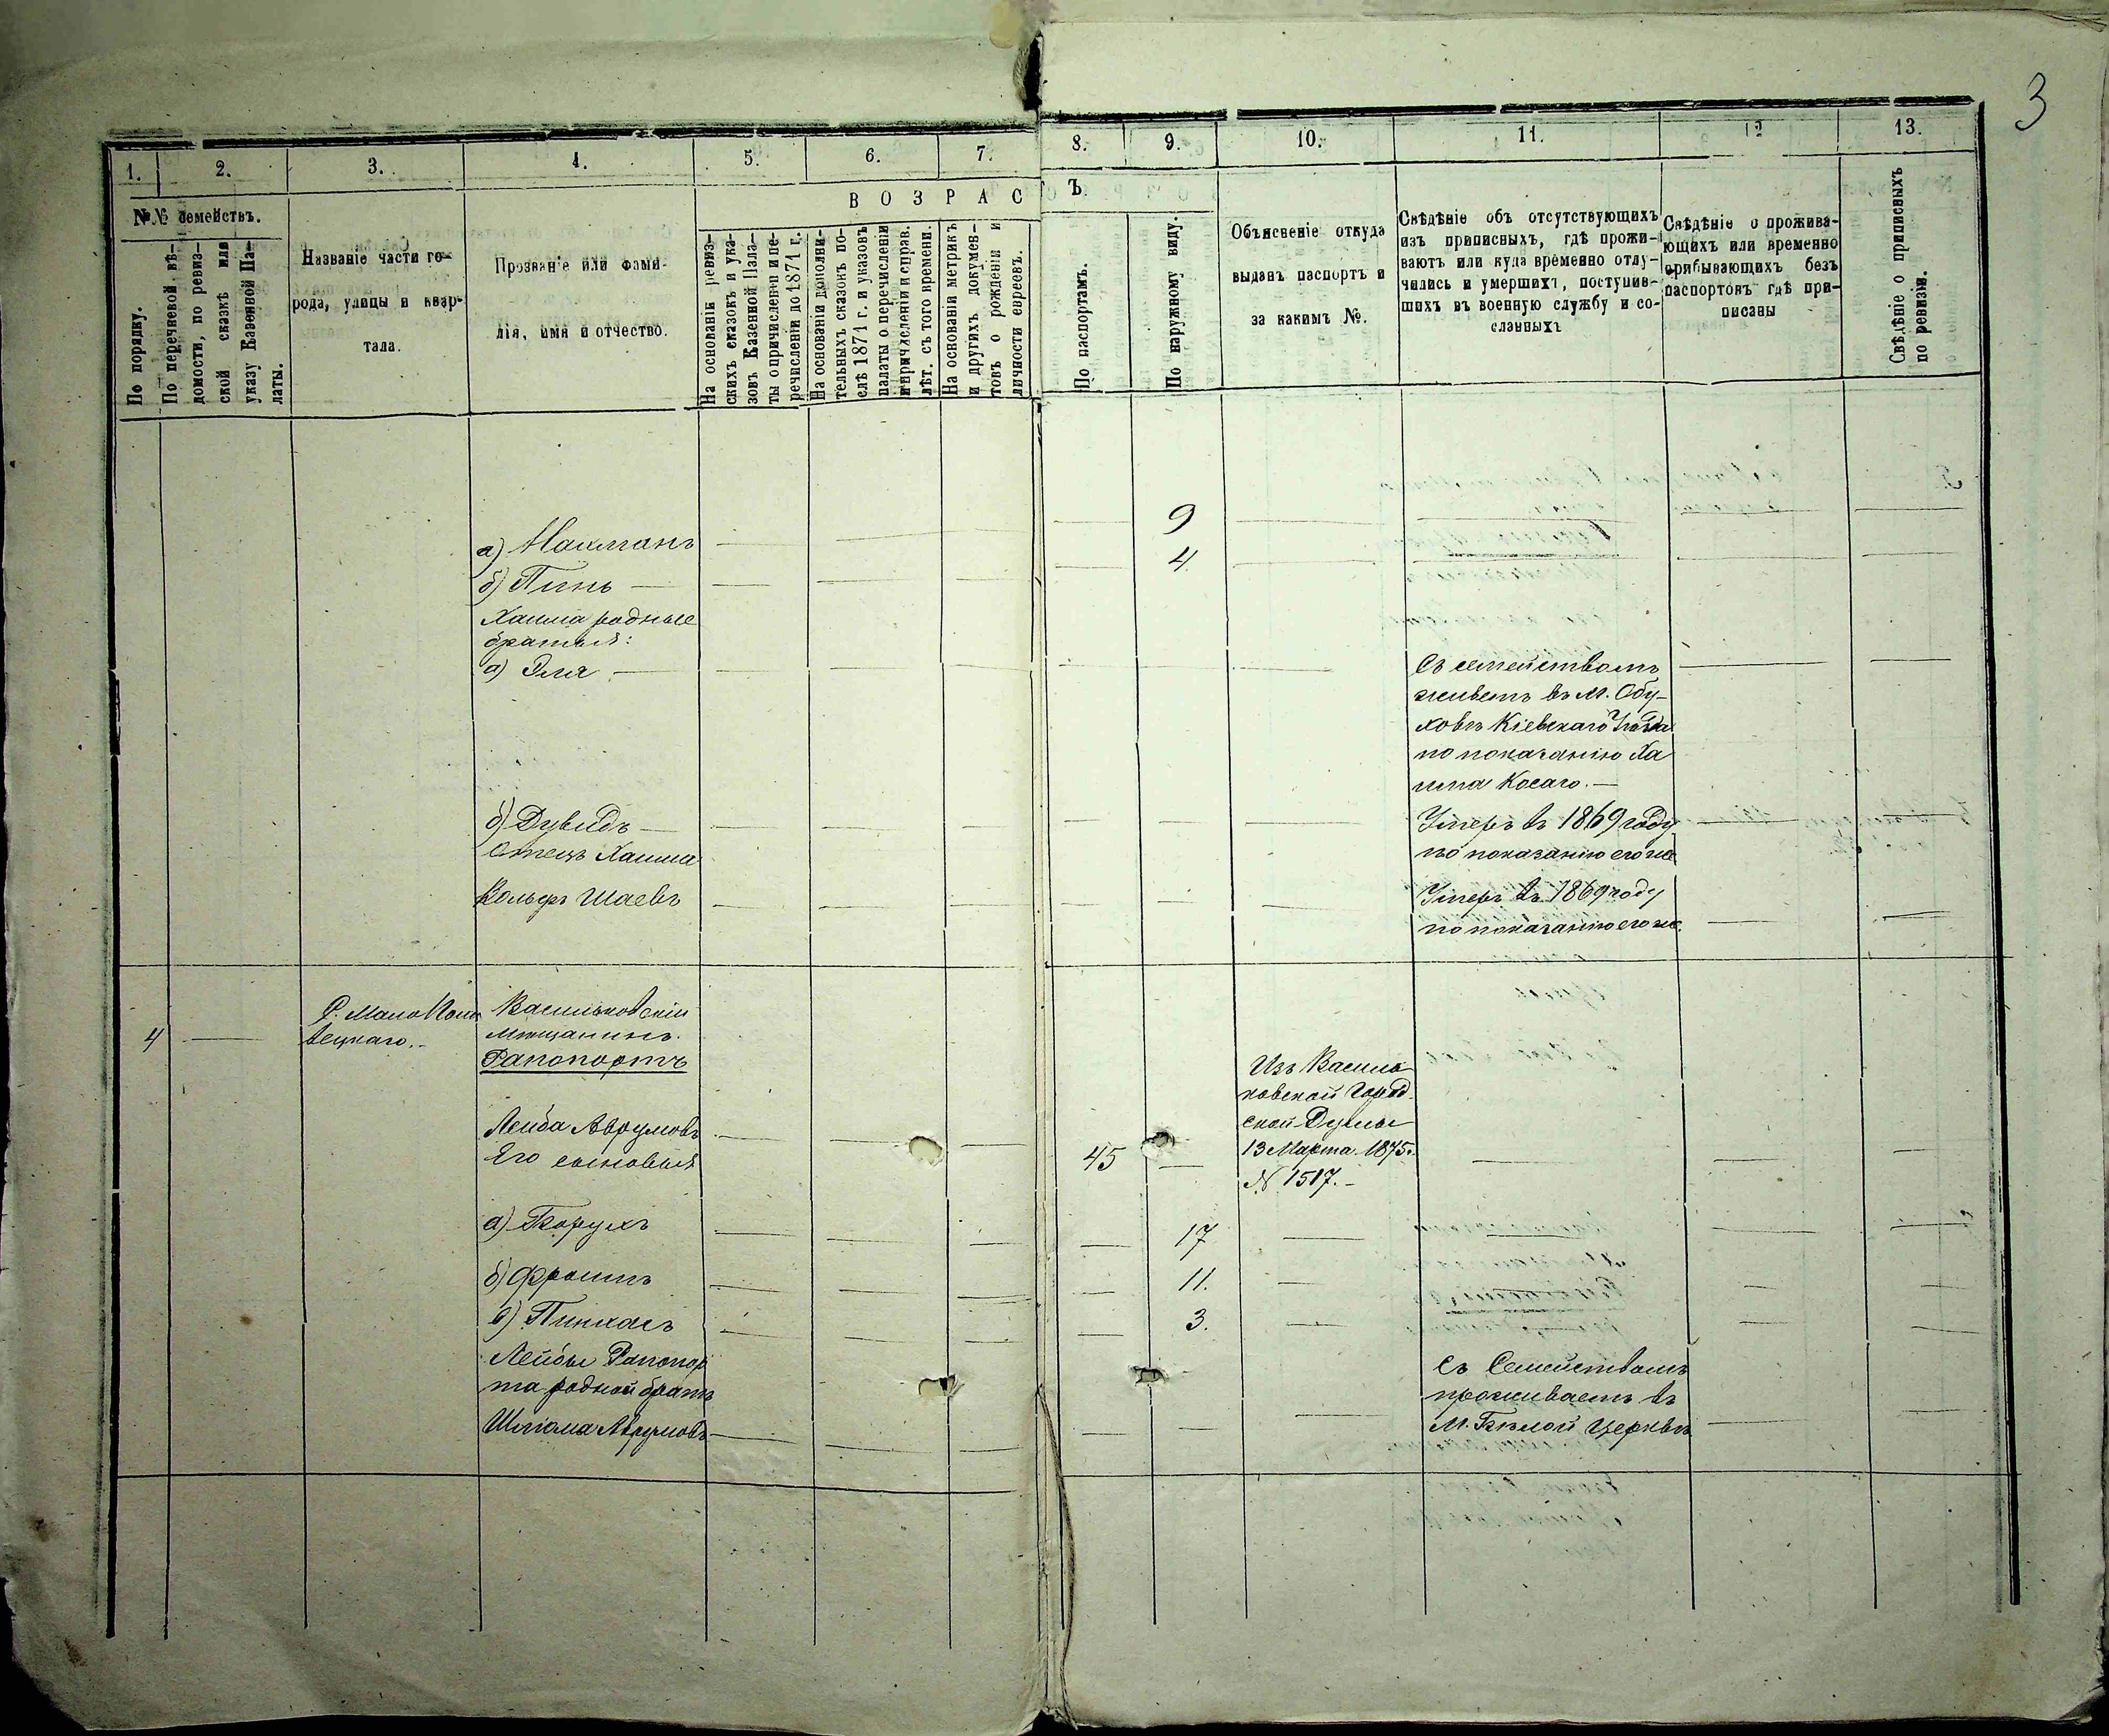 3
1.
2.
3.
4.
5.
6.
7.
8.
9.
10.
11.
12
13.
№№ семействъ.
ВОЗРАСТЪ.
По порядку.
По перечневой вѣ-
домости, по ревиз-
ской сказкѣ или
указу Казенной Па-
латы.
Названіе части го-
рода, улицы и квар-
тала.
Прозваніе или фами-
лія, имя и отчество.
На основаніи ревиз-
скихъ сказокъ и ука-
зовъ Казенной Пала-
ты о причисленіи и пе-
речисленіи до 1871 г.
На основаніи дополни-
тельныхъ сказокъ по-
слѣ 1871 г. и указовъ
палаты о перечисленіи
и причисленіи и справ.
лѣт. съ того времени.
На основаніи метрикъ
и другихъ докумен-
товъ о рожденіи и
личности евреевъ.
По паспортамъ.
По наружному виду.
Объясненіе откуда
выданъ паспортъ и
за какимъ №.
Свѣдѣніе объ отсутствующихъ
изъ приписныхъ, гдѣ прожи-
ваютъ или куда временно отлу-
чились и умершихъ, поступив-
шихъ въ военную службу и со-
сланныхъ
Свѣдѣніе о прожива-
ющихъ или временно
прибывающихъ безъ
паспортовъ гдѣ при-
писаны
Свѣдѣніе о приписныхъ
по ревизіи.
а) Нахманъ
9
б) Пинь
4
Хаима родные
братья:
а) Эля
Съ семействомъ
живетъ въ М. Обу-
ховѣ Кіевскаго Уѣзда
по показанію Ха
има Косаго.
б) Дувидъ
Умеръ въ 1869 году
по показанію его же
Отецъ Хаима
Вольфъ Шаевъ
Умеръ въ 1869 году
по показанію его же.
4
Васильковскій
мѣщанинъ.
вецкаго.
Рапопортъ
Лейба Аврумовъ
45
Изъ Василь
ковской Город
ской Думы
13 Марта 1875.
№ 1517.
Его сыновья
а) Борухъ
17
б) Фроимъ
11.
в) Пинхасъ
3.
Лейбы Рапопор
та родной братъ
Шлиома Аврумовъ
Съ Семействомъ
проживаетъ въ
М. Бѣлой Церквѣ